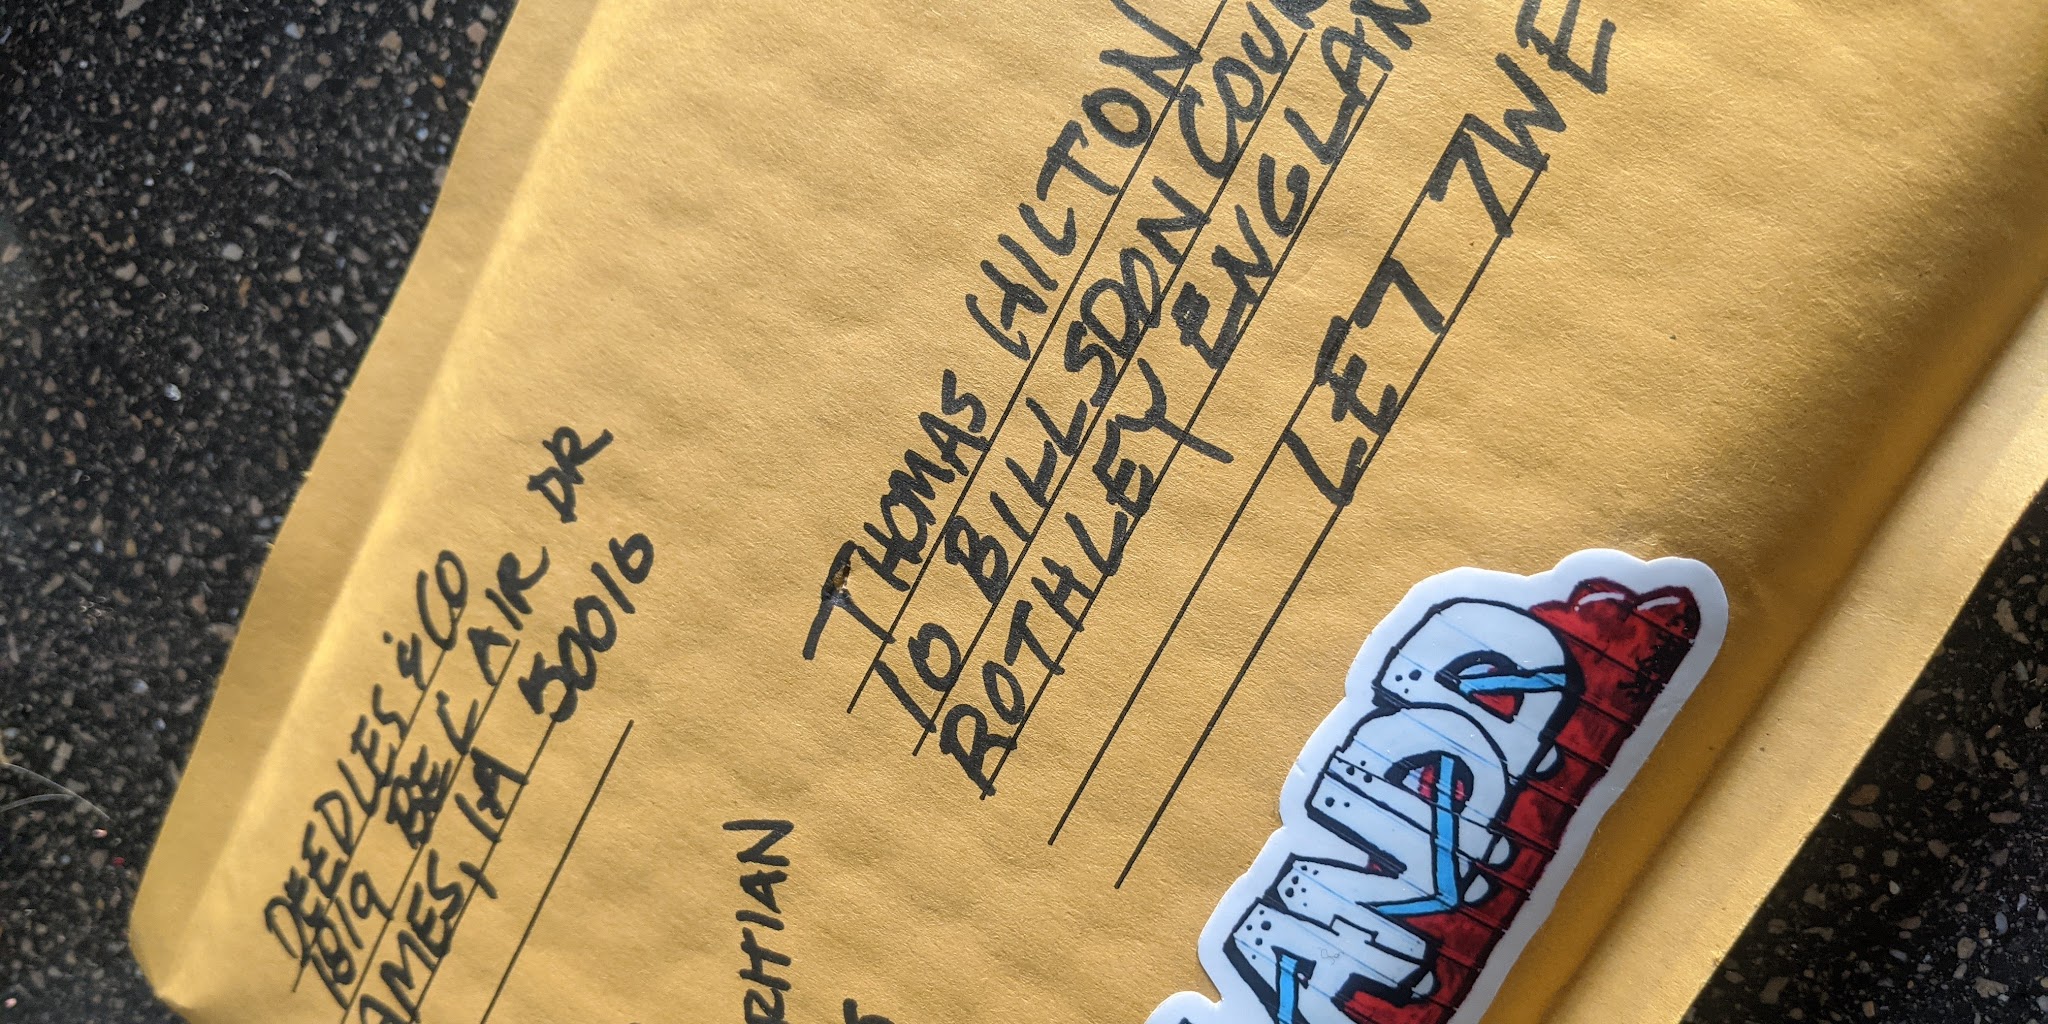 DEEDLES & CO
1819 BEL AIR DR
AMES, IA 50010
THOMAS HILTON
10 BILLSDON COUR
ROTHLEY ENGLAN
LE7 7WE
RHIAN